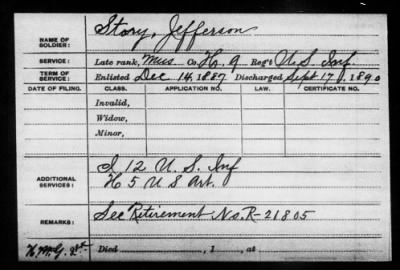 NAME OF SOLDIER: Story, Jefferson
SERVICE: Late rank, Mus Co. H. 9 Reg't U. S. Inf.
TERM OF SERVICE: Enlisted Dec 14, 1887 Discharged Sept 17, 1890
DATE OF FILING. CLASS. APPLICATION NO. LAW. CERTIFICATE NO.
Invalid,
Widow,
Minor,
ADDITIONAL SERVICES: I 12 U. S. Inf
H 5 U S Art.
REMARKS: See Retirement No. R-21805
Died , 1 , at